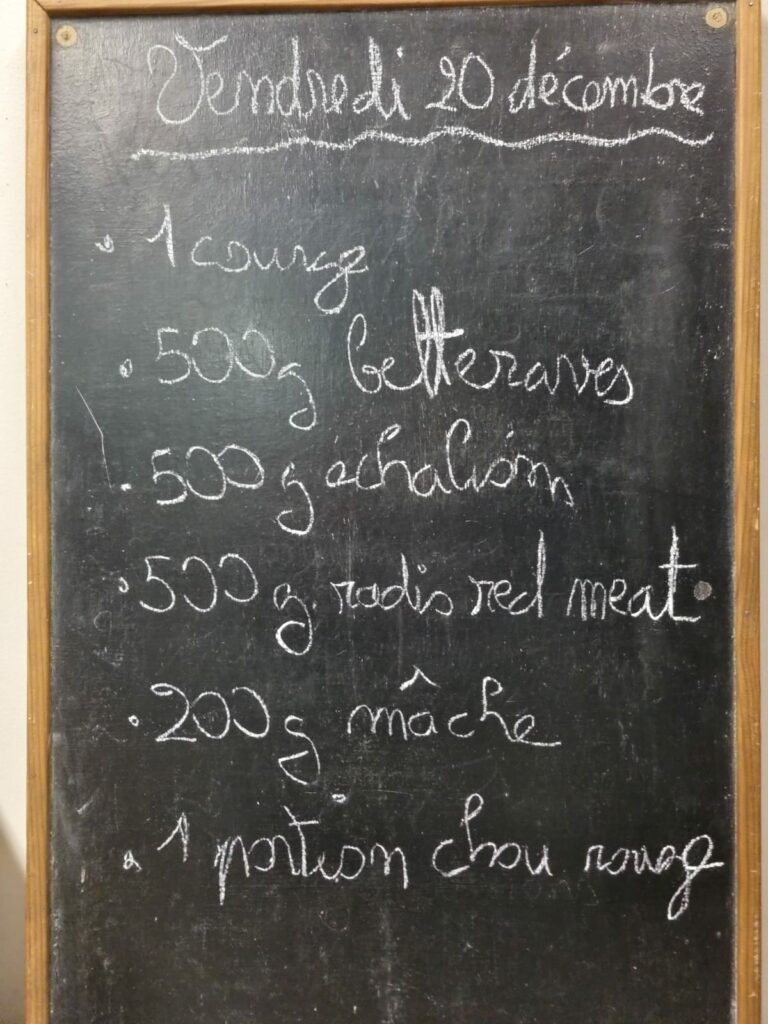 Vendredi 20 décembre
• 1 courge
• 500g betteraves
• 500g échalion
• 500g radis red meat
• 200g mâche
• 1 portion chou rouge